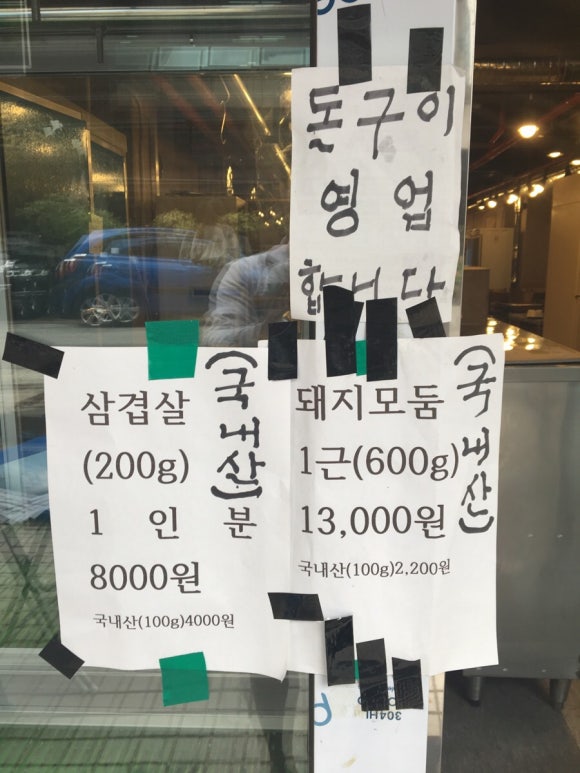 돈구이
영업
합니다
삼겹살
(200g)
1인분
8000원
국내산(100g)4000원
(국내산)
돼지모둠
1근(600g)
13,000원
국내산(100g)2,200원
(국내산)
304HI